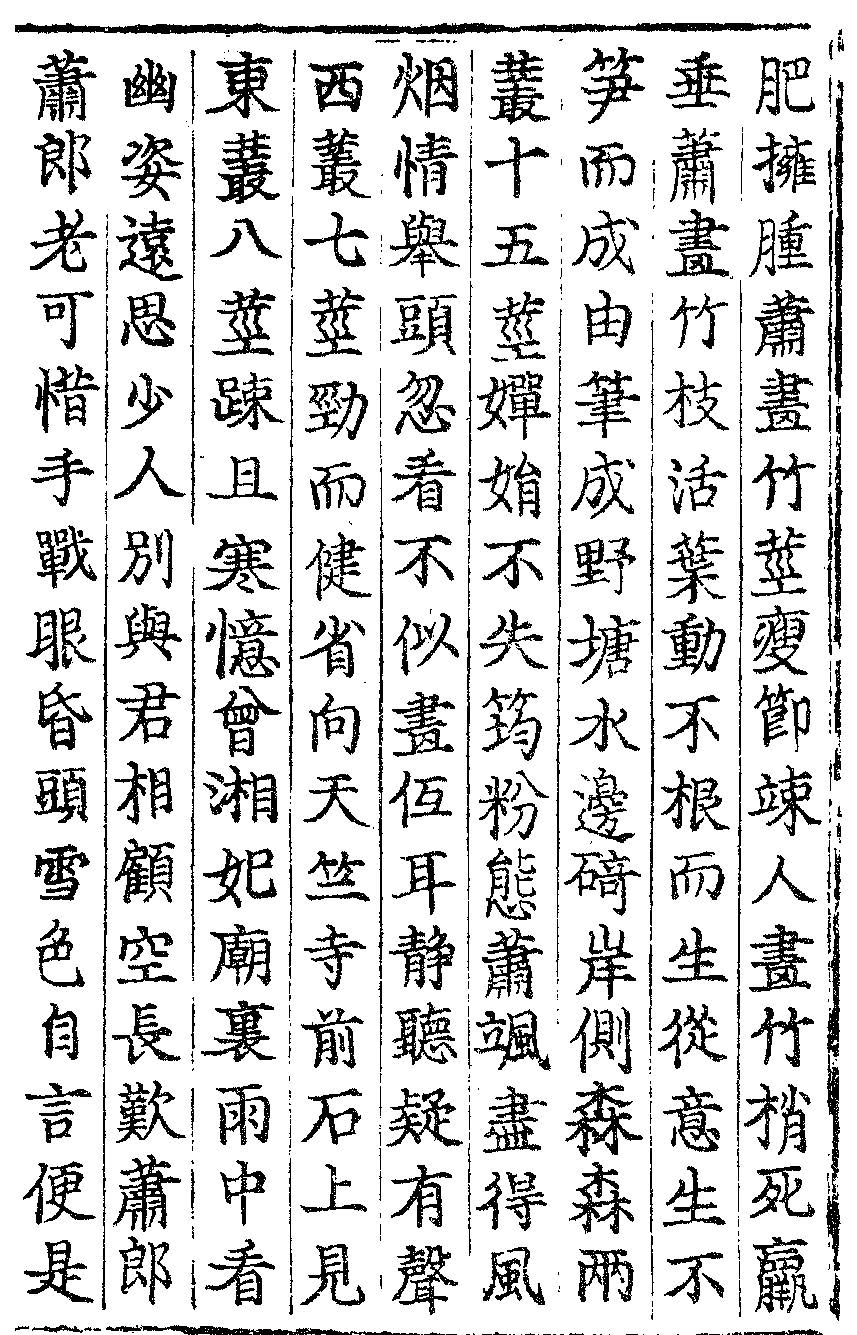 肥擁腫蕭畫竹莖瘦節竦人畫竹梢死羸
垂蕭畫竹枝活葉動不根而生從意生不
笋而成由筆成野塘水邊碕岸側森森兩
叢十五莖嬋娟不失筠粉態蕭颯盡得風
烟情舉頭忽看不似畫低耳静聽疑有聲
西叢七莖勁而健省向天竺寺前石上見
東叢八莖踈且寒憶曾湘妃廟裏雨中看
幽姿遠思少人別與君相顧空長歎蕭郎
蕭郎老可惜手戰眼昏頭雪色自言便是